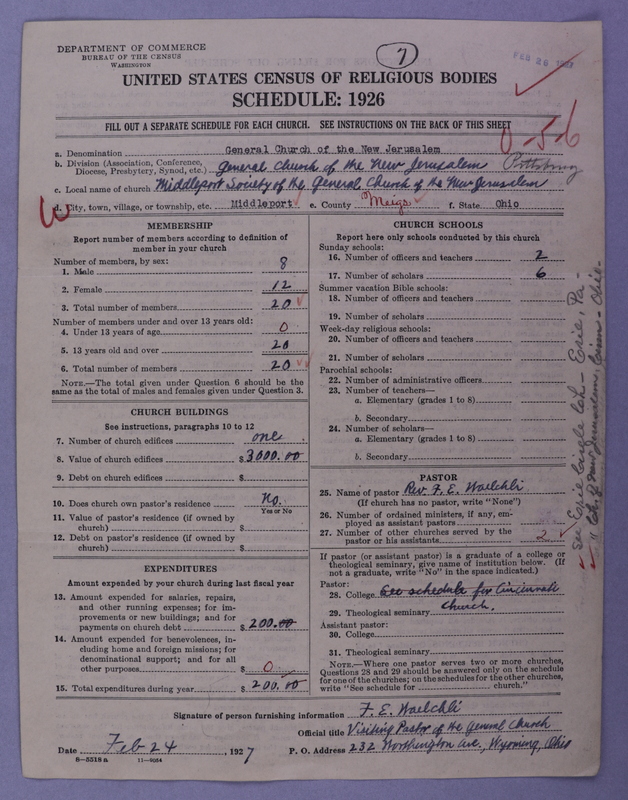 DEPARTMENT OF COMMERCE
BUREAU OF THE CENSUS
WASHINGTON
7
UNITED STATES CENSUS OF RELIGIOUS BODIES
SCHEDULE: 1926
FILL OUT A SEPARATE SCHEDULE FOR EACH CHURCH. SEE INSTRUCTIONS ON THE BACK OF THIS SHEET
0-5-6
a. Denomination General Church of the New Jerusalem
b. Division (Association, Conference, Diocese, Presbytery, Synod, etc.) General Church of the New Jerusalem Pittsburg
c. Local name of church Middleport Society of the General Church of the New Jerusalem
d. City, town, village, or township, etc. Middleport e. County Meigs f. State Ohio
MEMBERSHIP
Report number of members according to definition of
member in your church
Number of members, by sex:
1. Male 8
2. Female 12
3. Total number of members 20
Number of members under and over 13 years old:
4. Under 13 years of age 0
5. 13 years old and over 20
6. Total number of members 20
NOTE.—The total given under Question 6 should be the
same as the total of males and females given under Question 3.
CHURCH BUILDINGS
See instructions, paragraphs 10 to 12
7. Number of church edifices one
8. Value of church edifices $3000.00
9. Debt on church edifices $
10. Does church own pastor's residence No.
Yes or No
11. Value of pastor's residence (if owned by
church) $
12. Debt on pastor's residence (if owned by
church) $
EXPENDITURES
Amount expended by your church during last fiscal year
13. Amount expended for salaries, repairs,
and other running expenses; for im-
provements or new buildings; and for
payments on church debt $200.00
14. Amount expended for benevolences, in-
cluding home and foreign missions; for
denominational support; and for all
other purposes $ 0
15. Total expenditures during year $200.00
CHURCH SCHOOLS
Report here only schools conducted by this church
Sunday schools:
16. Number of officers and teachers 2
17. Number of scholars 6
Summer vacation Bible schools:
18. Number of officers and teachers
19. Number of scholars
Week-day religious schools:
20. Number of officers and teachers
21. Number of scholars
Parochial schools:
22. Number of administrative officers
23. Number of teachers—
a. Elementary (grades 1 to 8)
b. Secondary
24. Number of scholars—
a. Elementary (grades 1 to 8)
b. Secondary
PASTOR
25. Name of pastor Rev. F. E. Waelchli
(If church has no pastor, write "None")
26. Number of ordained ministers, if any, em-
ployed as assistant pastors
27. Number of other churches served by the
pastor or his assistants 2
If pastor (or assistant pastor) is a graduate of a college or
theological seminary, give name of institution below. (If
not a graduate, write "No" in the space indicated.)
Pastor:
28. College See schedule for Cincinnati
29. Theological seminary Church.
Assistant pastor:
30. College
31. Theological seminary
NOTE.—Where one pastor serves two or more churches,
Questions 28 and 29 should be answered only on the schedule
for one of the churches; on the schedules for the other churches,
write "See schedule for church."
See Erie Circle Ch - Erie, Pa -
" Ch. of New Jerusalem, - Ohio -
Signature of person furnishing information F. E. Waelchli
Official title Visiting Pastor of the General Church
Date Feb 24, 1927 P. O. Address 232 Worthington Ave., Wyoming, Ohio
8—5518 a 11—9054